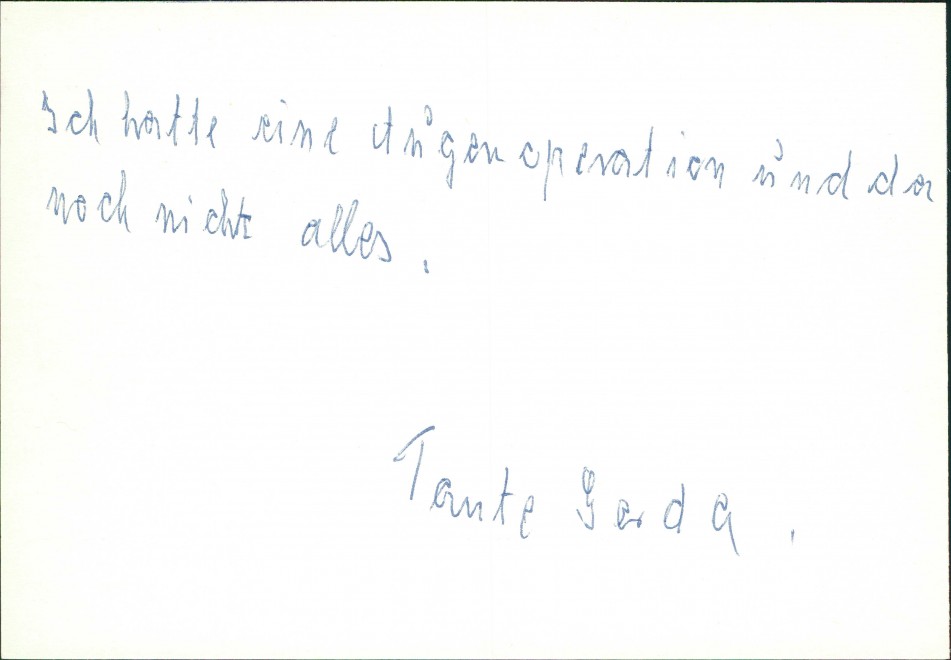 Ich hatte eine Augenoperation und da
noch nicht alles.
Tante Gerda.